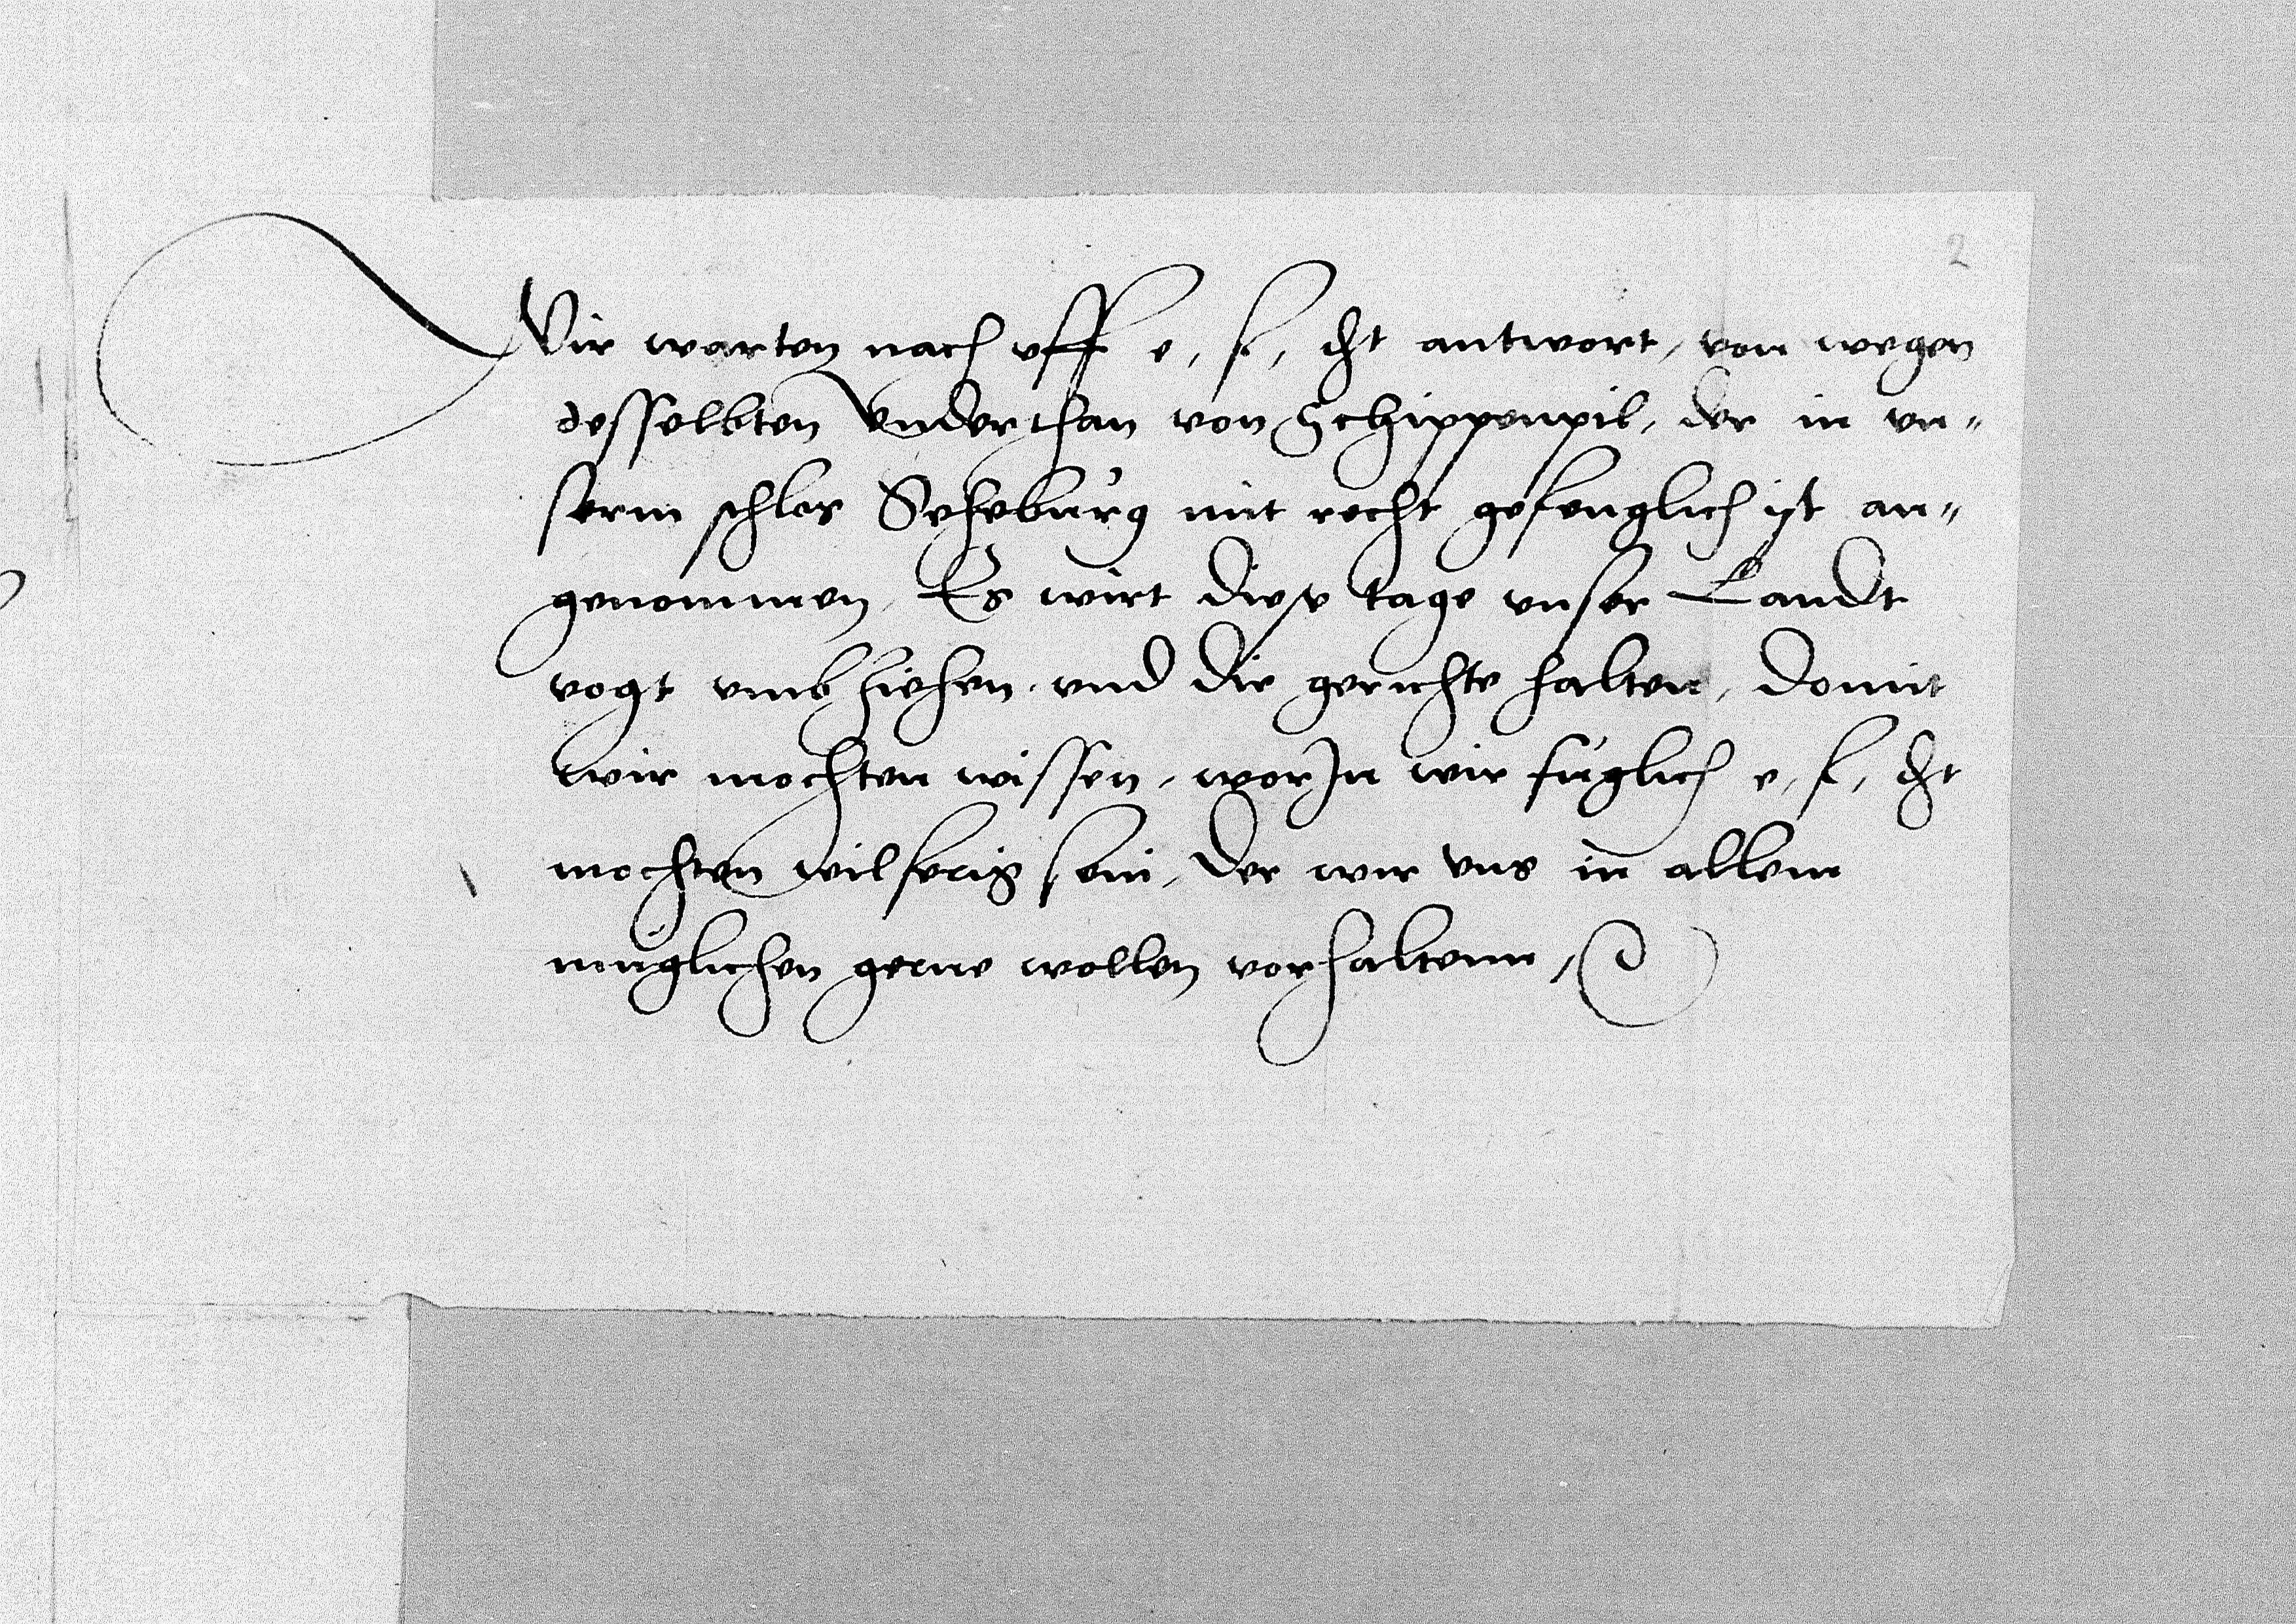 2
Wir warten nach vff e, f, dht antwort, von wegen
desselbten vnderthan von Schippenpil, der in vn„
serm schlos Seheburg mit recht gefenglich ist an„
genommen, Es wirt diese tage vnser Landt
vogt vmbzihehen, vnd die gerichte halten, domit
wir mochten wissen, worJn wir fuglich e, f, dht
mochten wilferig sein, der wir vns in allem
muglichen gerne wollen vorhaltenn,